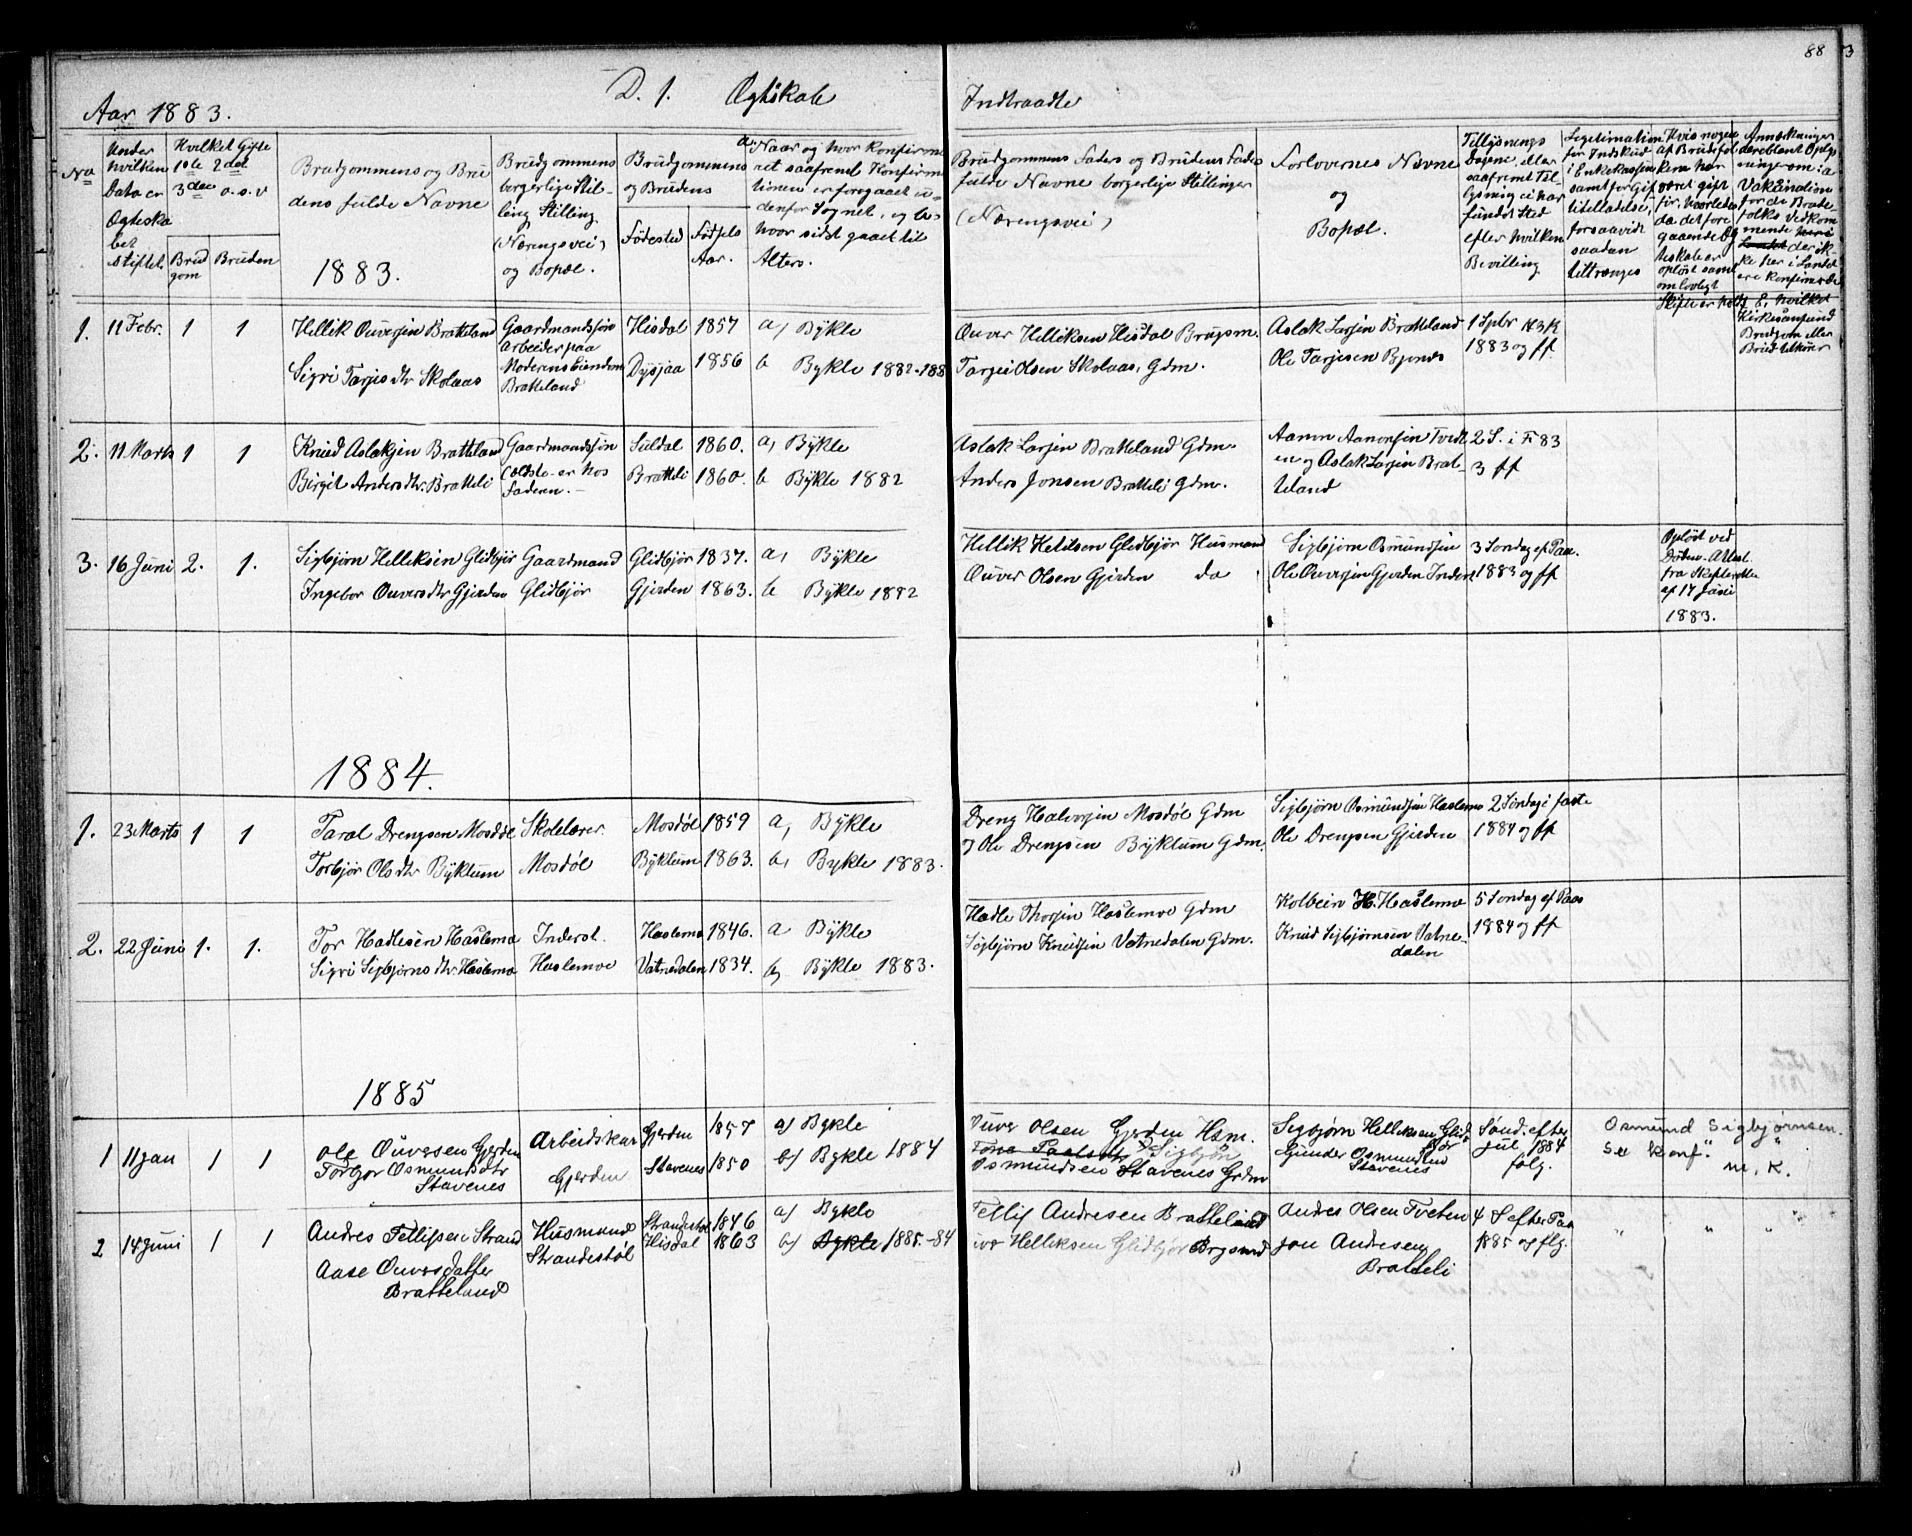 88 3
D. 1. Ægtskab Indtraadte
Aar 1883.
No
Under hvilken Data er Ægteskabet stiftet.
Hvilket Gifte 1ste 2det 3die o.s.v
Brudgom Bruden
Brudgommens og Brudens fulde Navne
1883.
Brudgommens borgerlige Stilling Stilling. (Næringsvei) og Bopæl.
Brudgommens og Brudens
Fødested Fødsels Aar.
Naar og hvor konfirmeret saafremt Konfirmationen er foregaaet udenfor Sognet, og hvor sidst gaaet til Alters.
Brudgommens Faders og Brudens Faders fulde Navne borgerlige Stillinger (Næringsvei)
Forlovernes Navne og Bopæl.
Tillysnings Dagene, eller saafremt Tillysning ei har fundet Sted efter hvilken Bevilling
Legitimation for Indskud i Enkekassen samt for Giftetilladelse, forsaavidt saadan tiltrænges
Hvis nogen af Brudefolkene har været gift før, hvorledes da det foregaaende Ægteskab er opløst samt om lovligt Skifte er holdt
Anmærkninger deriblandt Oplysninger om
Vakcination for de Brudefolks Vedkommende der ikke her i Landet ere konfirmerede
E, hvilket Kirkesamfund Brudgom eller Brud tilhører
1. 11 Febr. 1 1 Hellik Ouversen Bratteland Gaardmandssøn Hisdal 1857 a, Bÿkle Ouver Helliksen Hisdal Brugsm. Aslak Larsen Bratteland 1 Spbr H3K
arbeider paa Moderens Eiendom Bratteland
Sigri Tarjesdtr Skolaas Dÿsjaa 1856 b Bykle 1882-188 Targei Olsen Skolaas, Gdm. Ole Tarjesen Bjones 1883 og ff
2. 11 Marts 1 1 Knud Aslaksen Bratteland Gaardmandssøn Suldal 1860. a, Bÿkle Aslak Larsen Bratteland Gdm. Aanon Aanonsen Tvedt 2 S. i F 83
Birgit Andersdtr. Bratteli er hos Faderen. Bratteli 1860. b Bÿkle 1882 Anders Jonsen Bratteli Gdm. en og Aslak Larsen Brat- 3 ff
teland
3. 16 Juni 2. 1. Sigbjørn Helleksen Glidbjør Gaardmand Glidbjør 1837. a, Bÿkle Hellik Ketilsen Glidbjør Husmand Sigbjørn Osmundsen 3 Søndag ef Paa. Opløst ved
Døden. Attest
Ingebor Ouversdtr Gjerden Glidbjør Gjerden 1863. b Bÿkle 1882 Ouver Olsen Gjerden do Ole Ouversen Gjerden Inderst 1883 og ff fra Skifteretten
af 14 Juni
1883.
1884.
1. 23 Marts 1 1 Taral Drengsen Mosdøl Skolelærer. Mosdøl 1859 a, Bÿkle Dreng Halvorsen Mosdøl Gdm Sigbjørn Osmundsen Haslemo 2 Søndag i faste
Torbjør Olsdtr Bÿklum Mosdøl Bÿklum 1863. b, Bykle 1883. og Ole Drengsen Bÿklum Gdm. Ole Drengsen Gjerden 1884 og ff
2. 22 Juni 1. 1. Tor Hadlesen Haslemo Inderst. Haslemo 1846. a Bÿkle Hadle Thorsen Haslemoe Gdm Kolbein H. Haslemo 5 Søndag ef Paas
Sigri Sigbjørnsdtr Haslemo Haslemoe Vatnedalen 1834. b, Bÿkle 1883. Sigbjørn Knudsen Vatnedalen Gdm. Knud Sigbjørnsen Vatne- 1884 og ff
dalen
1885
1 11 Jan 1 1 Ole Ouversen Gjerden Arbeidskar Gjerden 1857 a) Bykle Ouver Olsen Gjerden Hsm. Sigbjørn Helleksen Glid- Sønd. efter Osmund Sigbjørnsen.
bjør
Torbjor Osmundsdtr Stavenes Gjerden Stavenes 1850 b) Bykle 1884 Tone Paalsdtr Sigbjøn Gunder Osmundsen Jul 1884 Se konf. " "
Osmundsen Stavenes Grdm Stavenes folg. m. K.
2 14 Juni 1 1 Andres Tellefsen Strand Husmand Strandestøl 1846 a) Bykle Tellif Andresen Bratteland Andres Olsen Tveten 4 S efter Paa " " " "
Aase Ouversdatter Bratteland Strandestøl Hisdal 1863 b) Bykle 1885.-84 uve Helleksen Glidbjør Brgsmd Jon Andresen 1885 og flg.
Bratteli